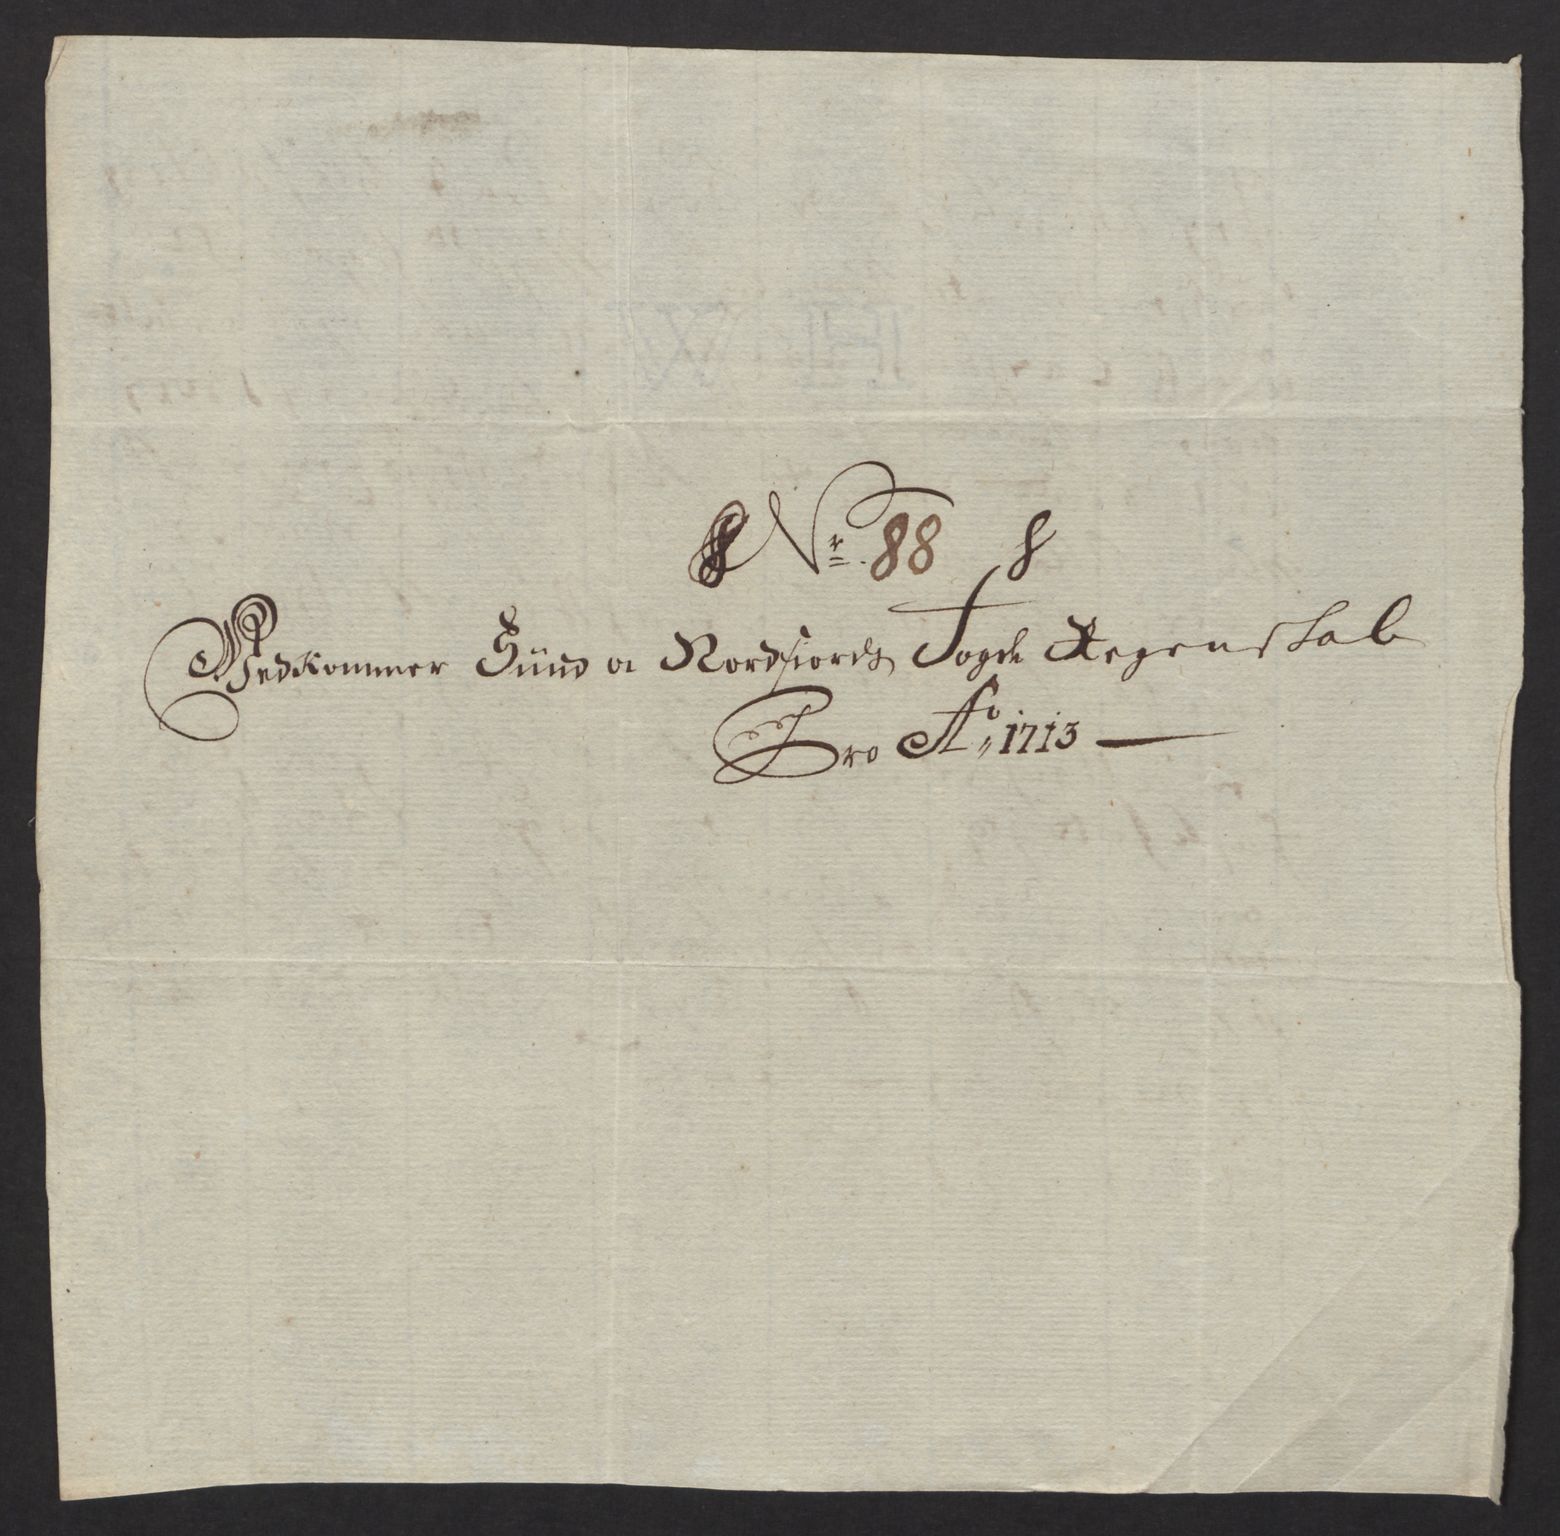 Nr. 88
Vedkommer Sünd og Nordfiords Fogde Regenskab
Pro Ao. 1713